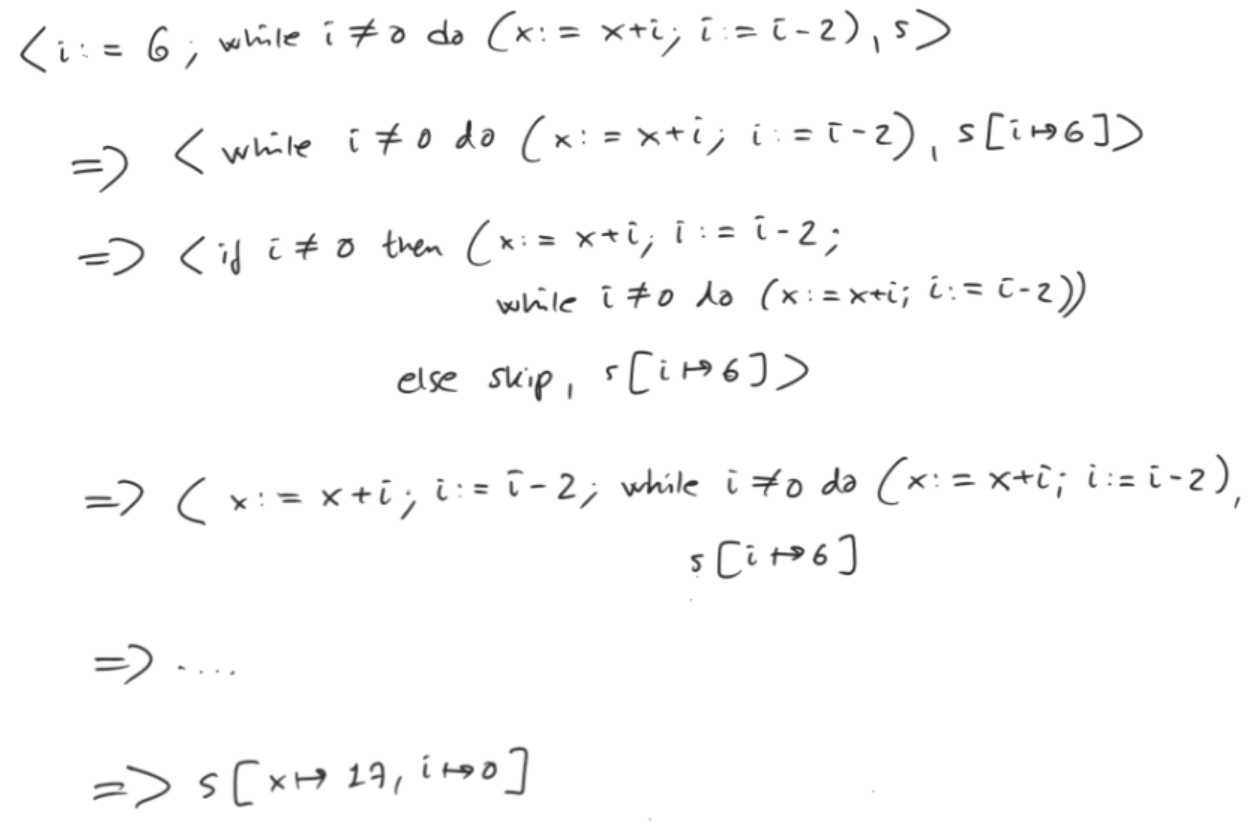 <i := 6 ; while i ≠ 0 do (x := x+i; i := i-2), s>
=> <while i ≠ 0 do (x := x+i; i := i-2), s[i↦6]>
=> <if i ≠ 0 then (x := x+i; i := i-2;
while i ≠ 0 do (x := x+i; i := i-2))
else skip, s[i↦6]>
=> ( x := x+i; i := i-2; while i ≠ 0 do (x := x+i; i := i-2),
s[i↦6]
=> ....
=> s[x↦17, i↦0]